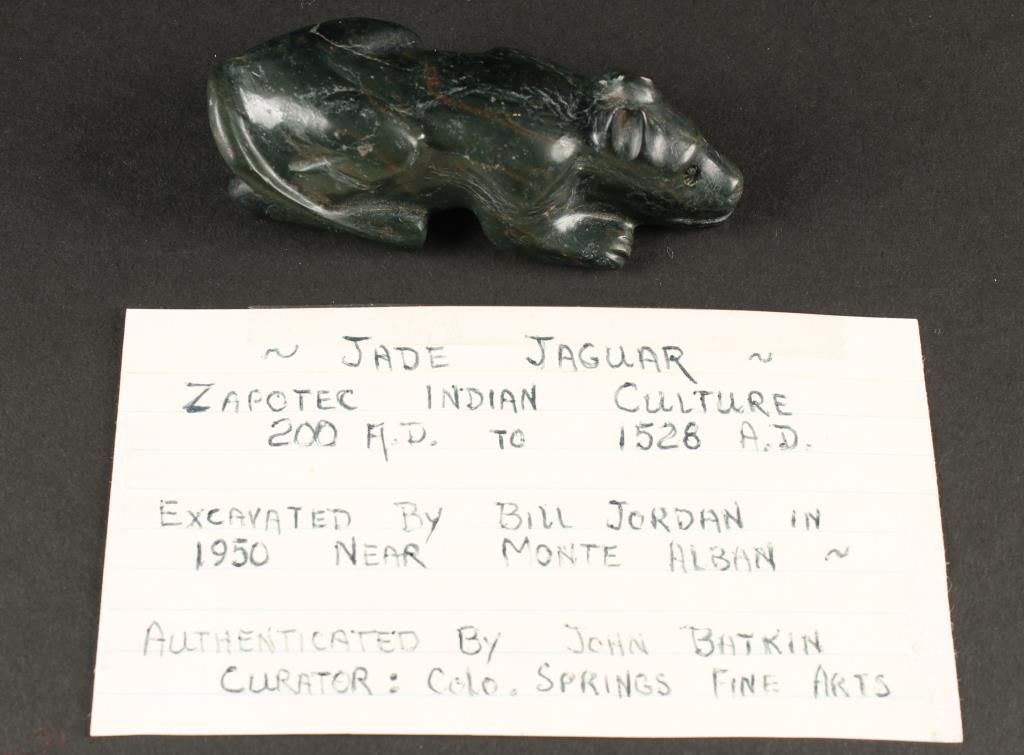 ~ JADE JAGUAR ~
ZAPOTEC INDIAN CULTURE
200 A.D. TO 1528 A.D.
EXCAVATED By BILL JORDAN IN
1950 NEAR MONTE ALBAN ~
AUTHENTICATED By JOHN BATKIN
CURATOR: Colo. SPRINGS FINE ARTS